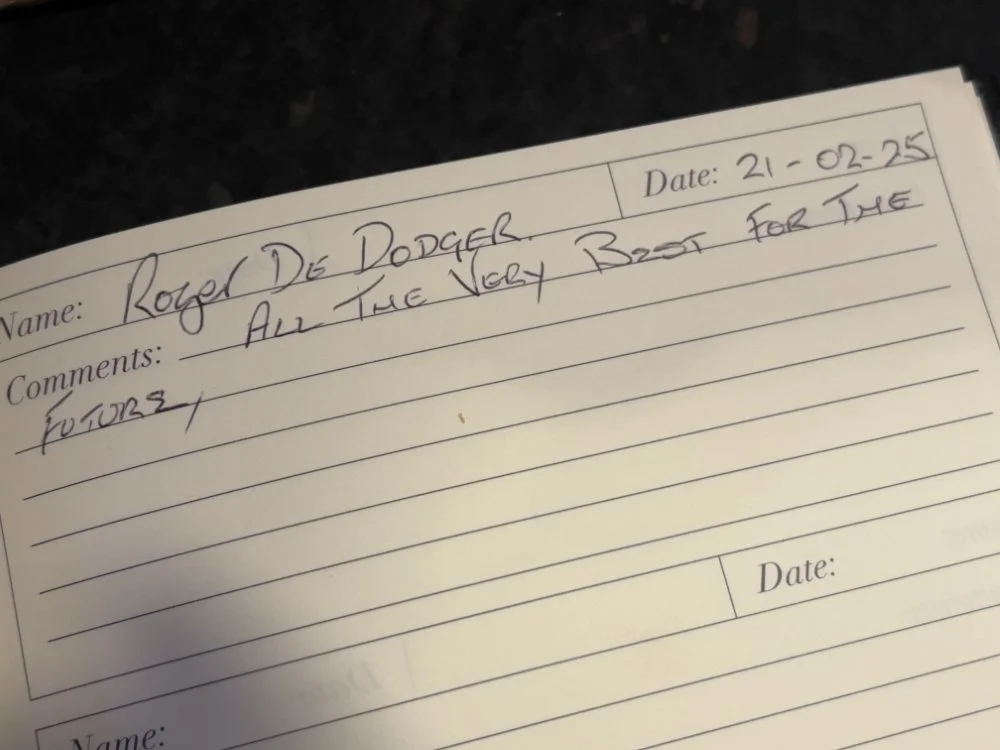 Name: Roger De Dodger. Date: 21-02-25
Comments: All The Very Best For The
Future,
Date:
Name: